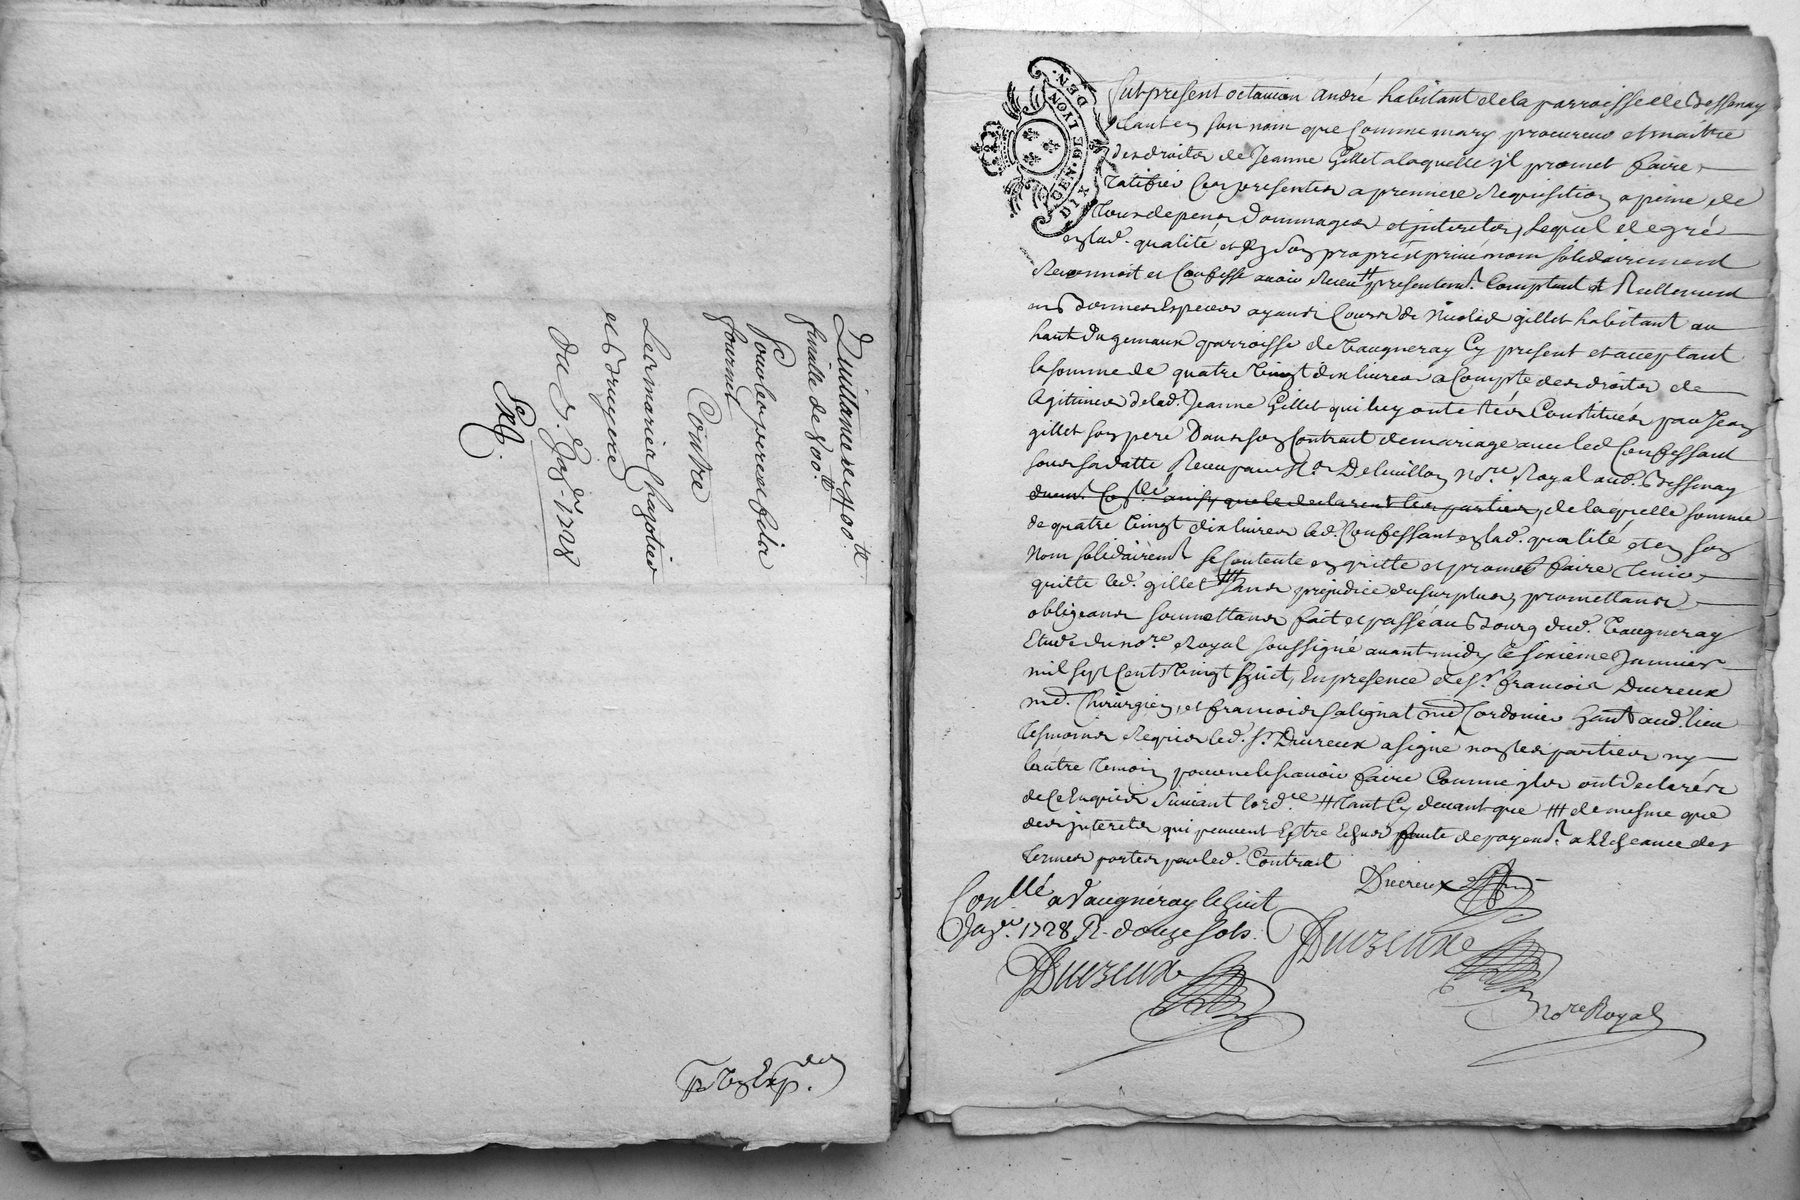 Quittance de 400.tt
finalle de 800.tt
Pour les pere et fils
fournel
Contre
Les mariés Chazotier
et Bruyere
Du 5.e Janv.r 1728
Exp.
GEN. DE LYON
DIX DEN.
Fut present octavien andré habitant de la parroisse de Bessenay
tant en son nom que Comme mary procureur et maitre
des droits de Jeanne Gillet a laquelle il promet faire
ratifier Ces presentes a premiere Requisition a peine de
tous depens dommages et interets, Lequel de gré
en lad. qualité et en son propre et privé nom solidairement
Reconnoit et Confesse avoir Receu # presentem.t Comptant et Reellement
en bonnes Especes ayant Cours de Nicolas gillet habitant au
haut du gemaux parroisse de Vaugneray Cy present et acceptant
la somme de quatre Vingt dix livres a Compte des droits de
legitimes de lad. Jeanne Gillet qui luy ont etés Constitués par Jean
gillet son pere Dans son Contrat de mariage avec led. Confessant
sous sa datte Receu par M.e Delevillon No.re Royal aud. Bessenay
duem.t Con.llé ainsy que le declarent les parties, de laquelle somme
de quatre Vingt dix livres led. Confessant en lad. qualité et en son
Nom solidairem.t se Contente en quitte et promet faire tenir
quitte led. gillet ## sans prejudice du surplus, promettant
obligeant soumettant fait et passé au Bourg dud. Vaugneray
Etude du no.re Royal soussigné avant midy le sixieme Janvier
mil sept Cents Vingt huict, En presence de S.r francois Ducreux
m.e Chirurgien, et francois salignat m.e Cordonier hant aud. lieu
tesmoins Requis led. S.r Ducreux a signé non les parties ny
lautre temoin pour ne le sçavoir faire Comme ils ont declarés
de Ce Enquis suivant lord.ce # tant Cy devant que ## de mesme que
des interets qui peuvent Estre Echus faute de payem.t a lEcheance des
termes portés par led. Contrait
Ducreux
Con.llé a Vaugneray le huit
Janv.r 1728 R. douze sols.
Ducreux
Ducreux
No.re Royal